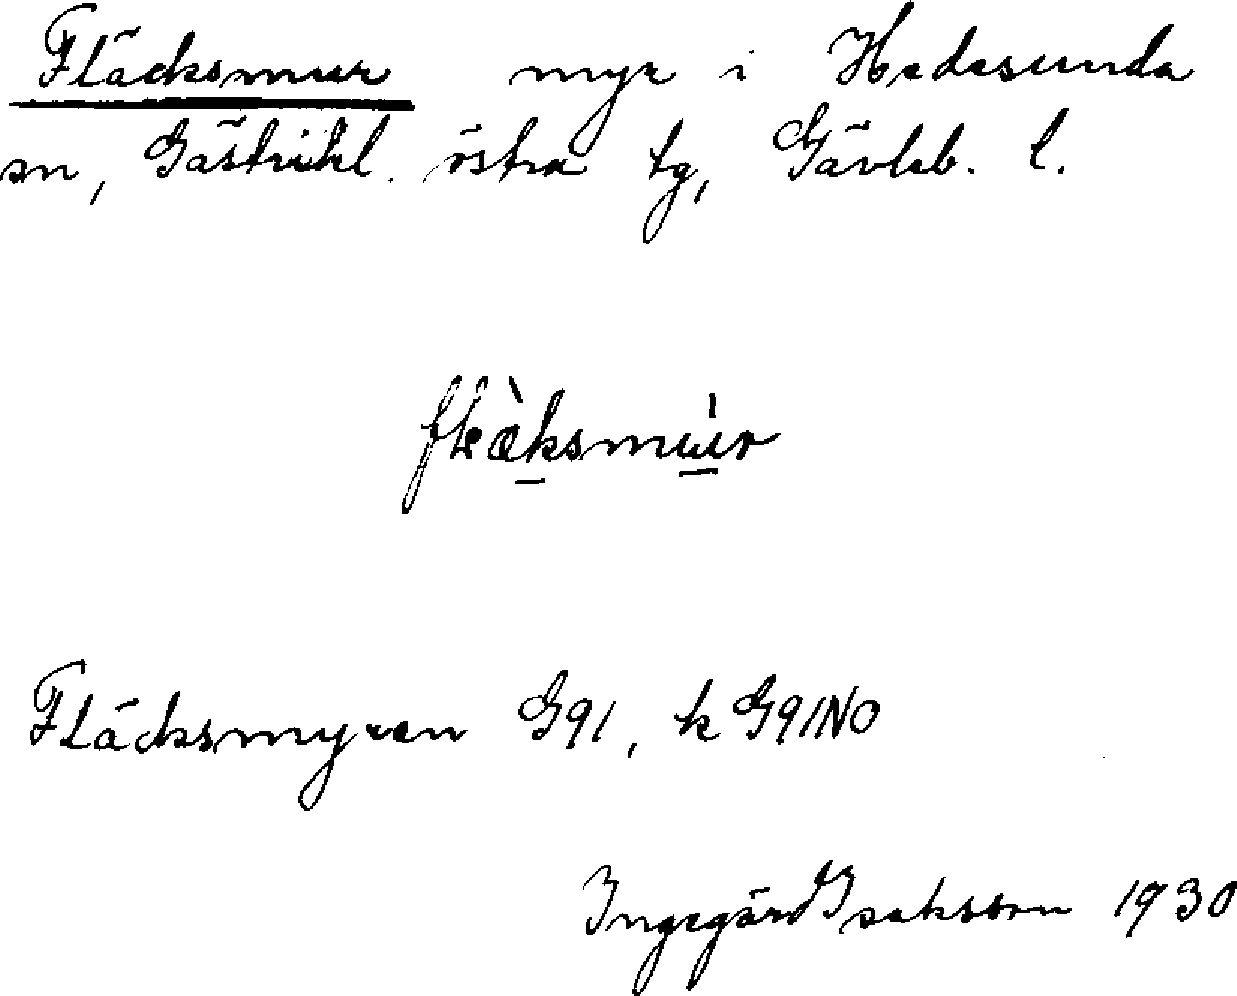 Fläcksmur myr i Hedesunda
sn, Gästrikl. östra tg, Gävleb. l.
flæ̀ksmúur
Fläcksmyren G91, k G91NO
Ingegärd Isaksson 1930